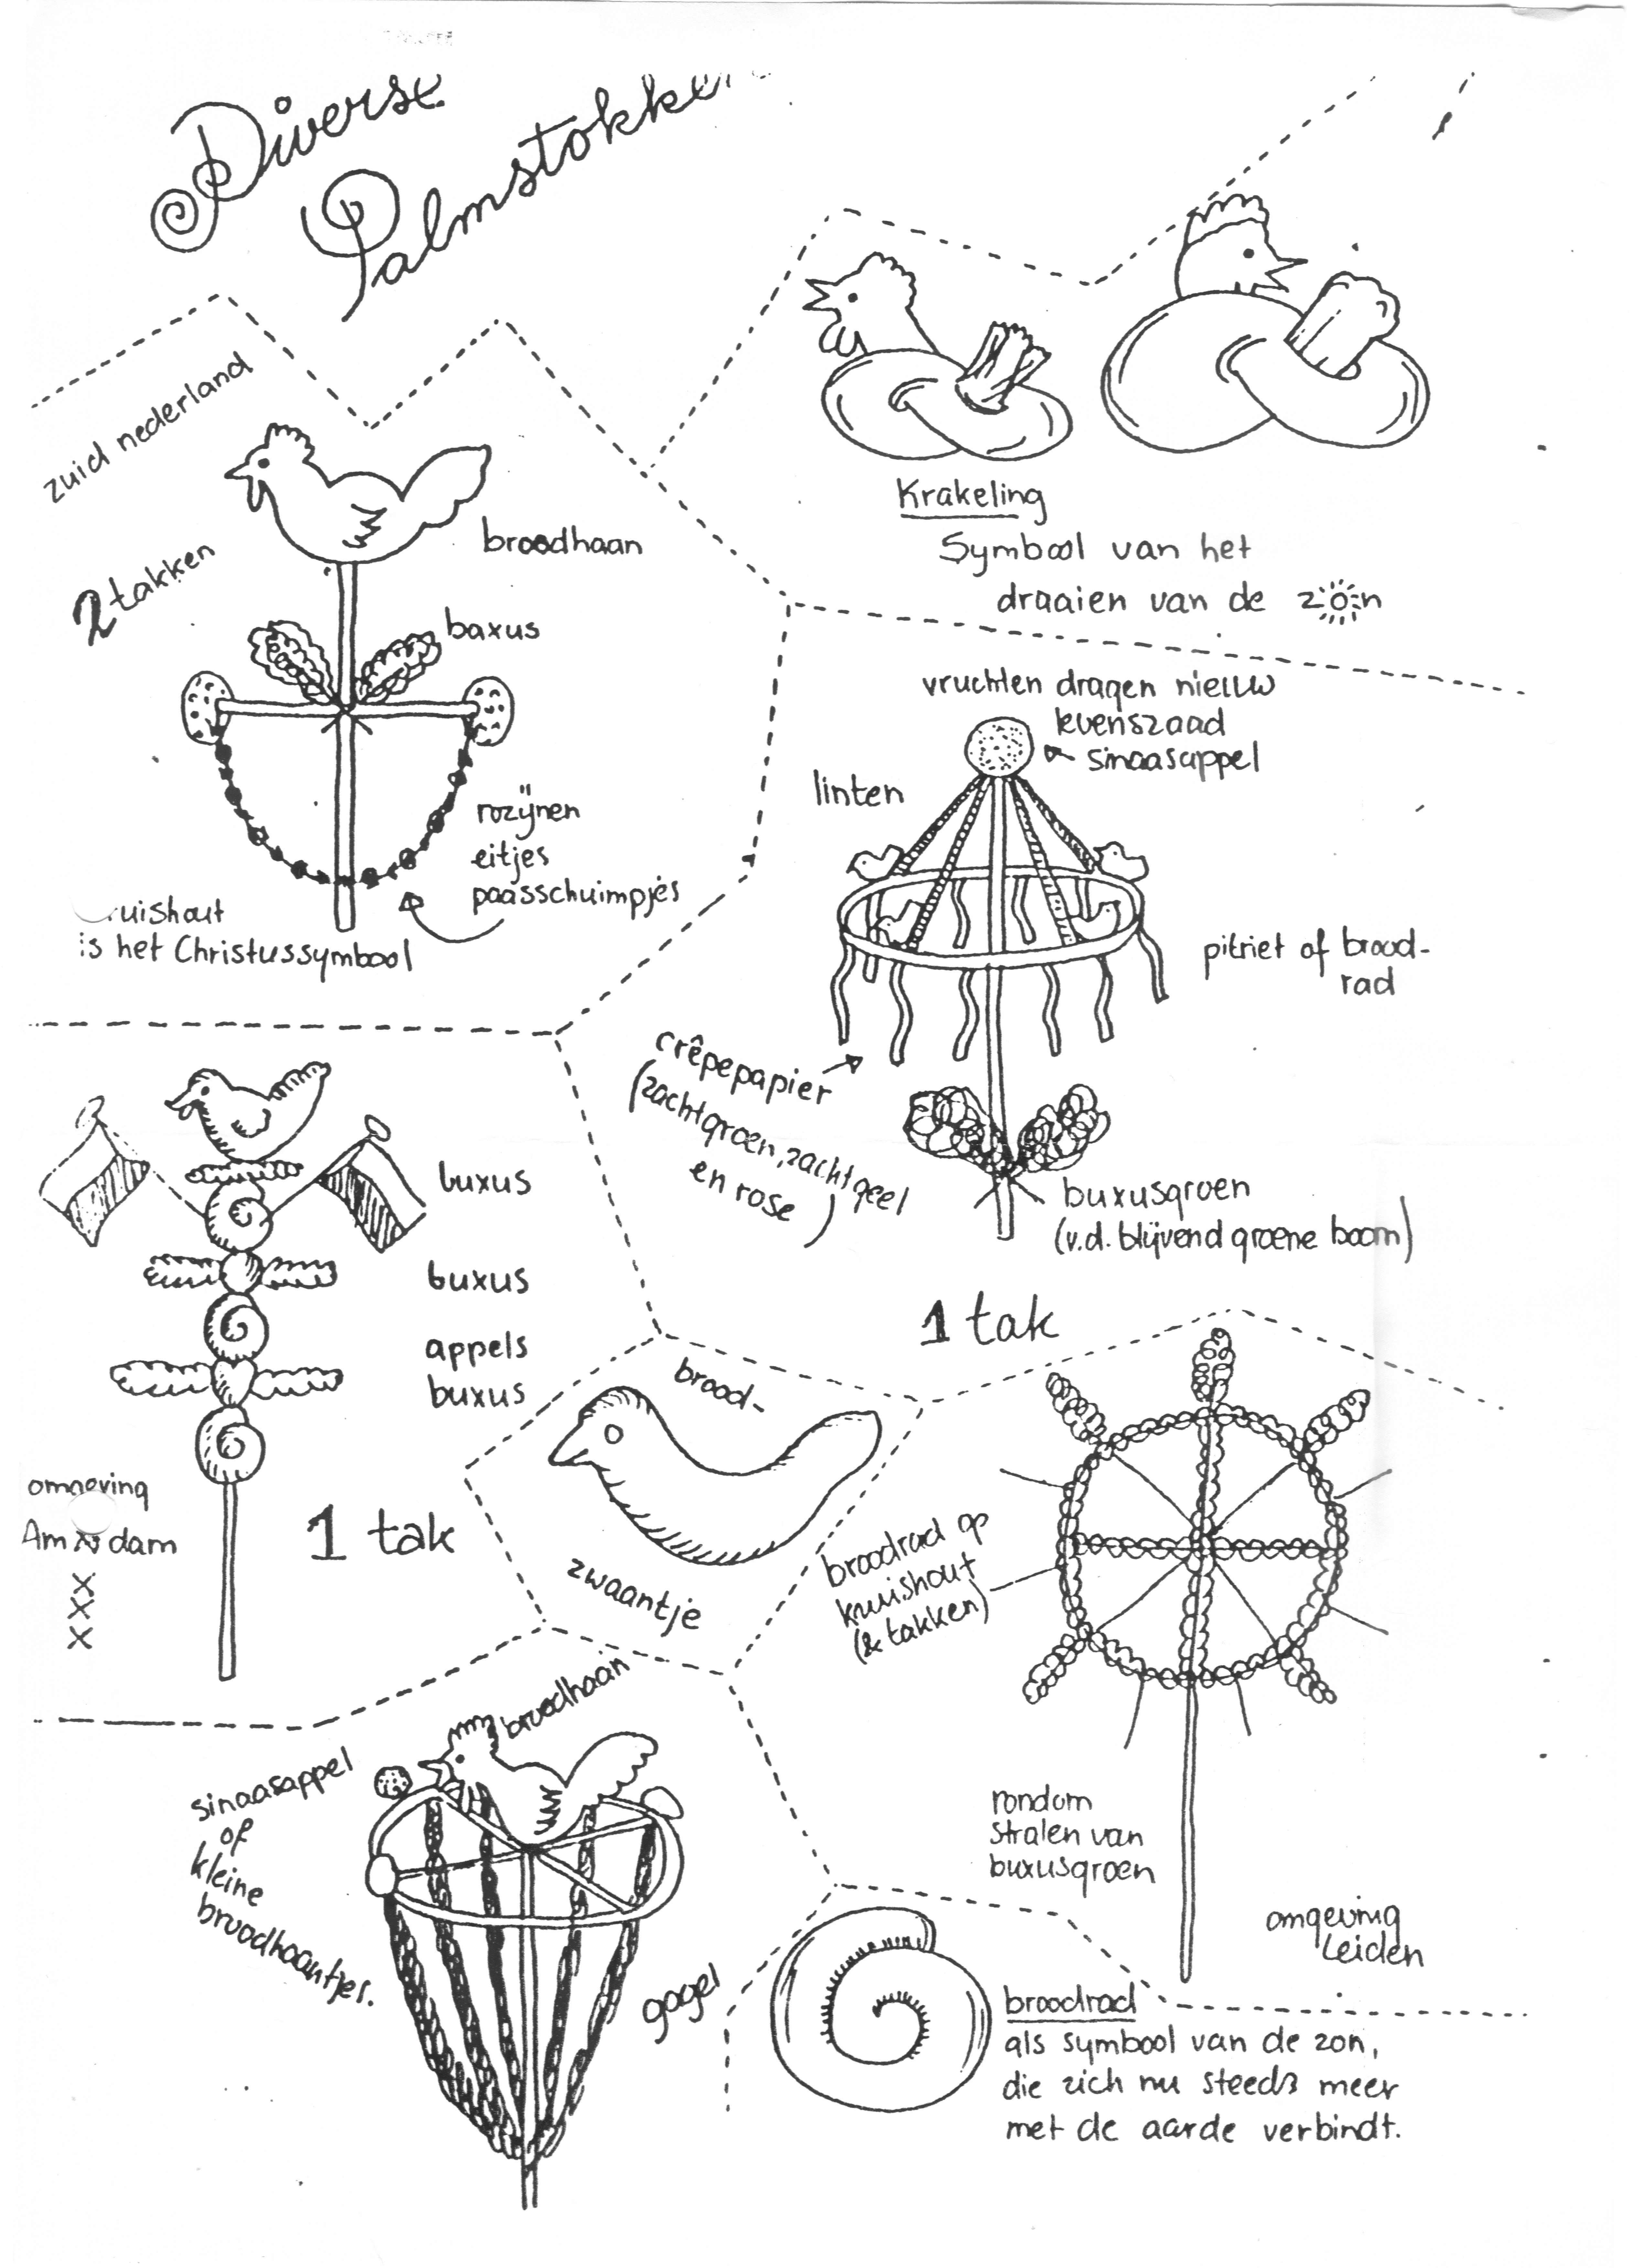 Diverse
Palmstokke
zuid nederland
2 takken
broodhaan
baxus
rozijnen
eitjes
paasschuimpjes
ruishout
is het Christussymbool
Krakeling
Symbool van het
draaien van de zon
vruchten dragen nieuw
levenszaad
sinaasappel
linten
pitriet of brood-
rad
crêpepapier
(zachtgroen, zachtgeel
en rose)
buxusgroen
(v.d. blijvend groene boom)
1 tak
buxus
buxus
appels
buxus
omgeving
Am dam
X
X
X
1 tak
brood-
zwaantje
broodrad op
kruishout
(2 takken)
rondom
stralen van
buxusgroen
omgeving
Leiden
broodhaan
sinaasappel
of
kleine
broodhaantjes.
gagel
broodrad
als symbool van de zon,
die zich nu steeds meer
met de aarde verbindt.